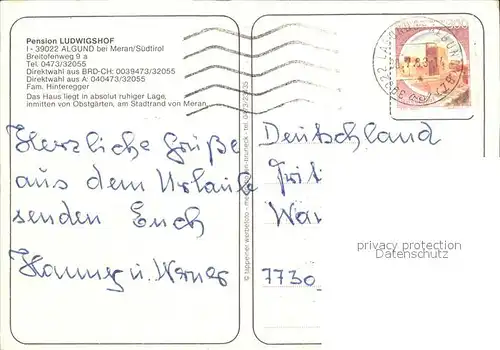 Pension LUDWIGSHOF
I - 39022 ALGUND bei Meran/Südtirol
Breitofenweg 9 a
Tel. 0473/32055
Direktwahl aus BRD-CH: 0039473/32055
Direktwahl aus A: 040473/32055
Fam. Hinteregger
Das Haus liegt in absolut ruhiger Lage,
inmitten von Obstgärten, am Stadtrand von Meran.
Herzliche Grüße
aus dem Urlaub
senden Euch
Hannes u. Werner
© tappeiner werbefoto
Deutschland
7730
privacy protection
Datenschutz